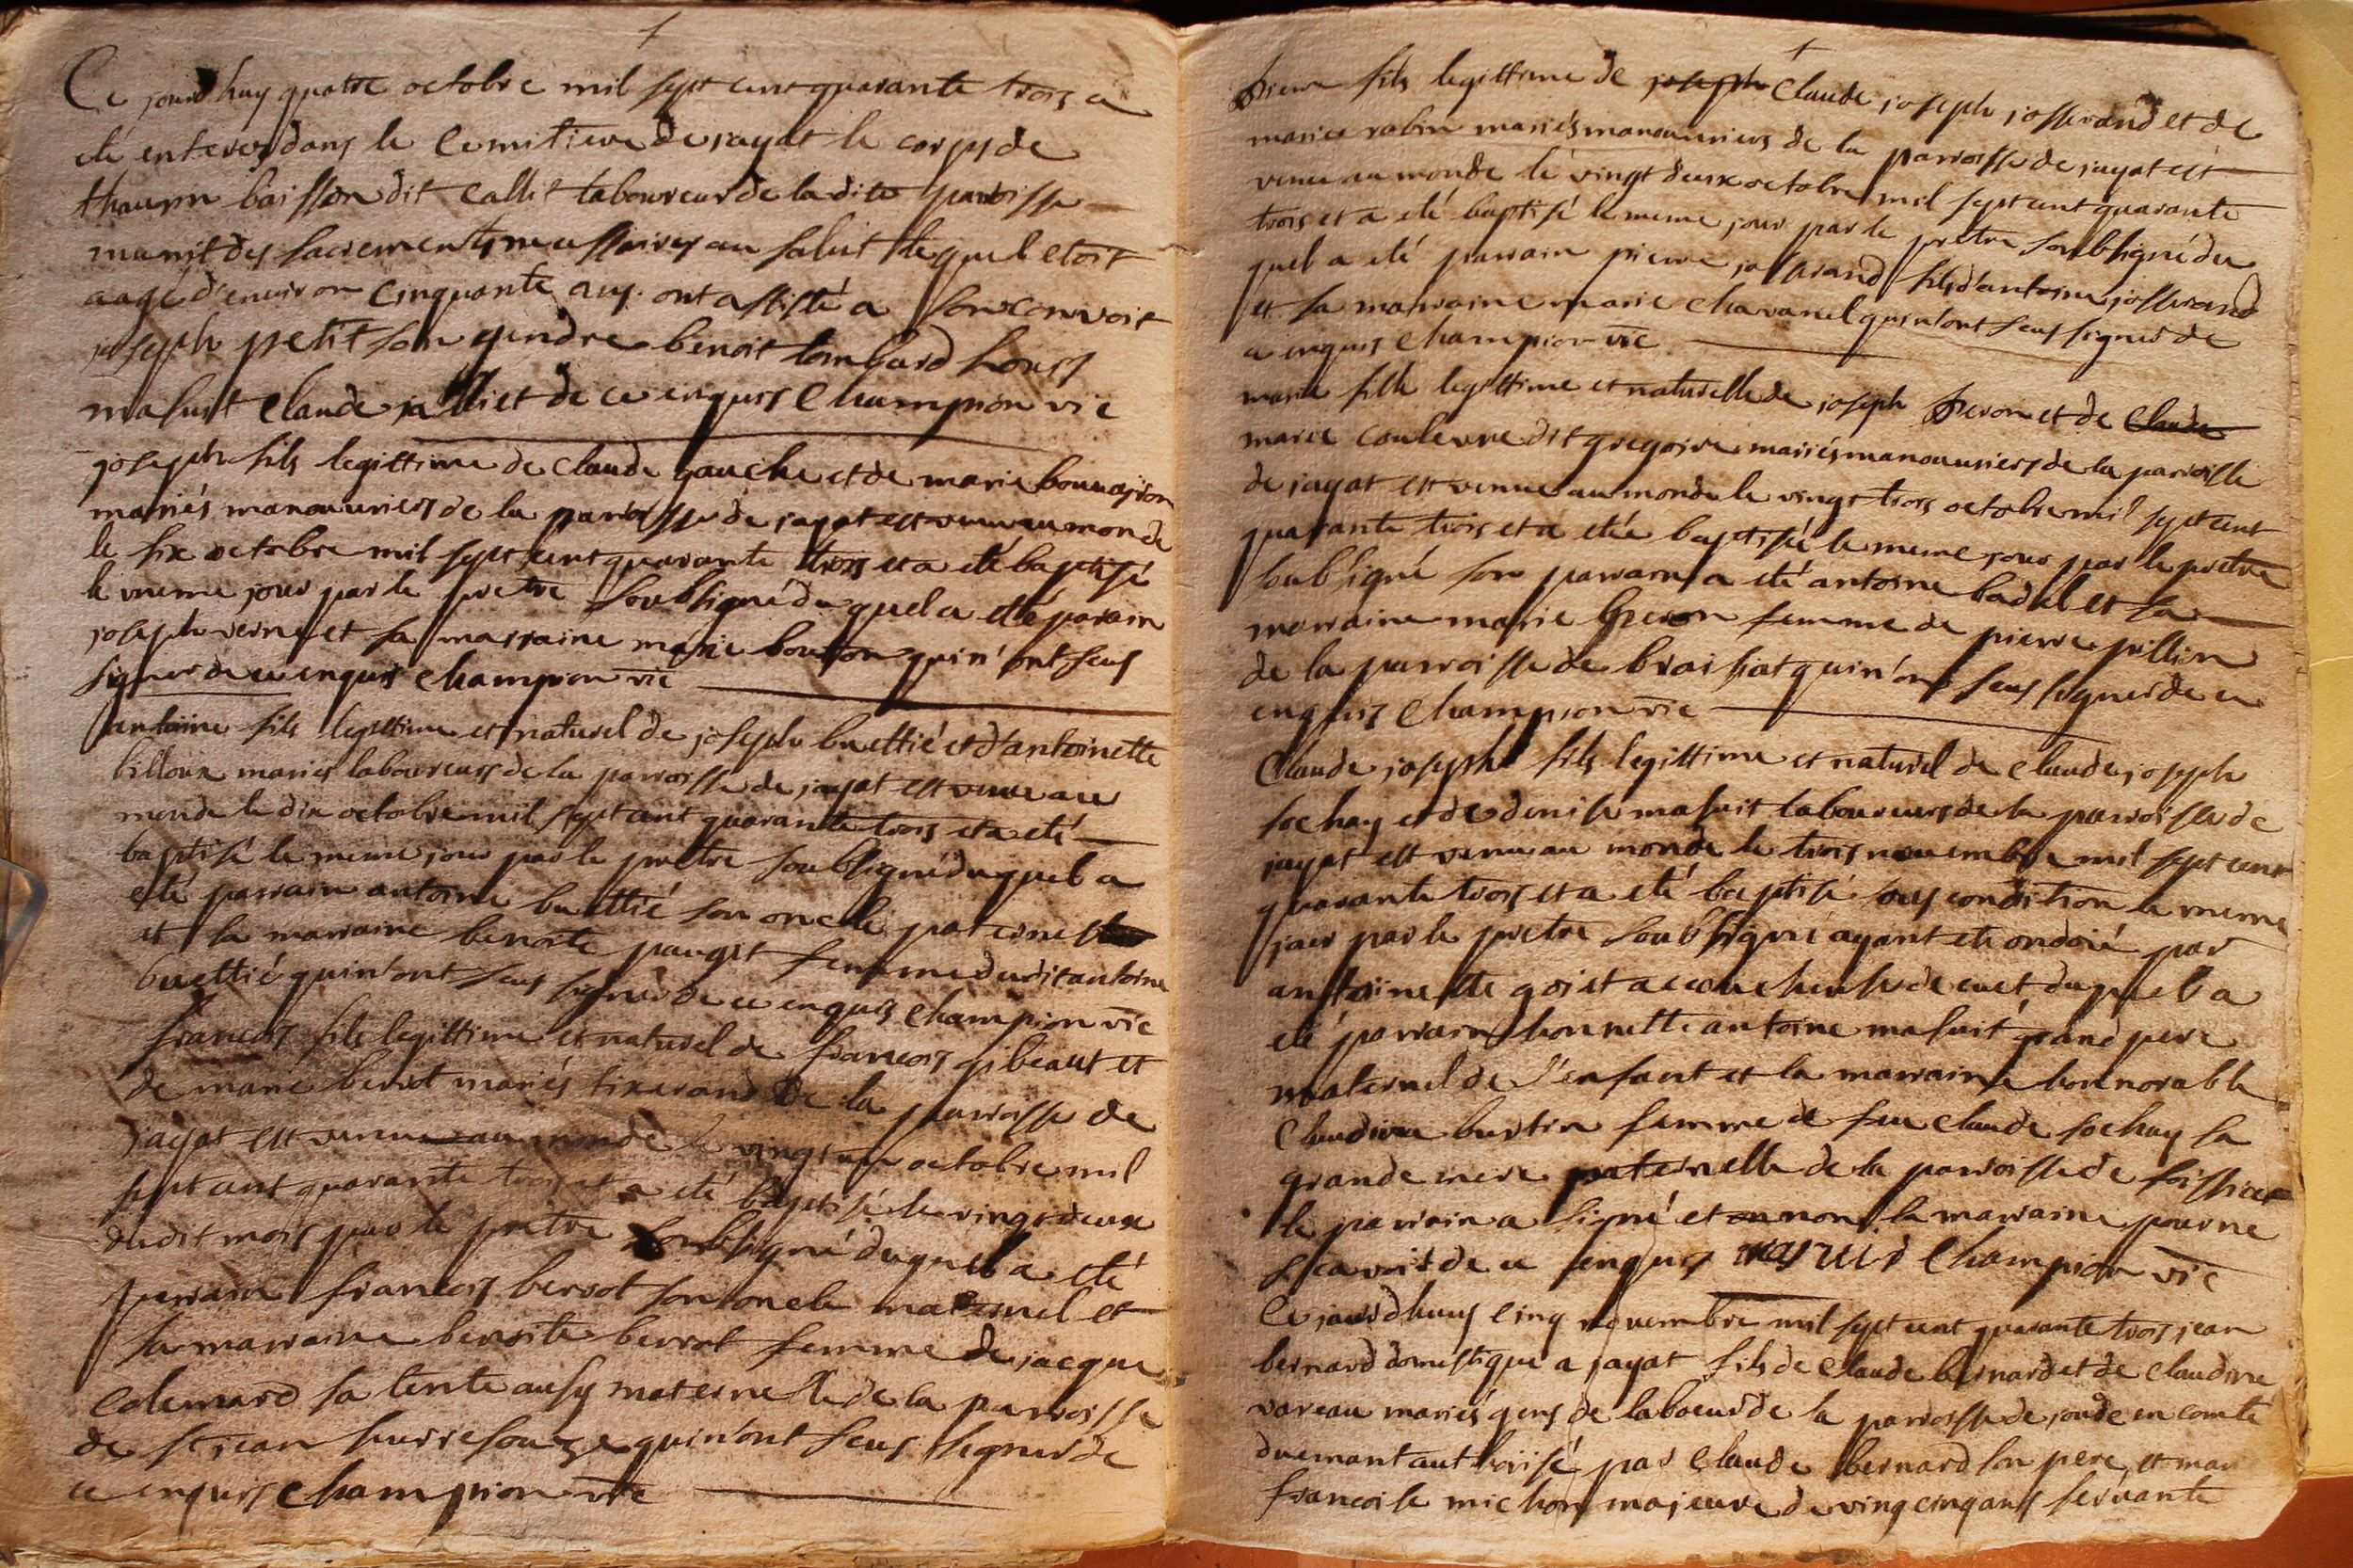 Ce jourdhuy quatre octobre mil sept cent quarante trois a
eté enteré dans le cemitiere de jayat le corps de
boisson dit callet laboureur de la dite paroisse
munit des sacrements necessaires au salut lequel etoit
aagé d'environ cinquante ans. ont assisté a son convoit
joseph petit son gendre benoit lombard
masuit claude et de ce enquis Champion vic
joseph fils legittime de claude gauche et de marie
mariés manouvriers de la paroisse de jayat est venu au monde
le six octobre mil sept cent quarante trois et a eté baptisé
le meme jour par le pretre soubsigné duquel a eté parain
joseph verne et sa marraine marie bouton qui n'ont sceus
signer de ce enquis Champion vic
antoine fils legittime et naturel de joseph buettié et d'antoinette
billoux mariés laboureurs de la parroisse de jayat est venu au
monde le dix octobre mil sept cent quarante trois et a eté
baptisé le meme jour par le pretre soubsigné duquel a
eté parrain antoine buettié son oncle paternel
et la marraine benoite pauget femme dudit antoine
buettié qui n'ont sceus signer de ce enquis Champion vic
francois fils legittime et naturel de francois gibeaut et
de marie berrot mariés tixerand de la parroisse de
jayat est venu au monde le vingt un octobre mil
sept cent quarante trois et a eté baptisé le vingt deux
dudit mois par le pretre soubsigné duquel a eté
parrain francois berrot son oncle maternel et
sa marraine benoite berrot femme de jacque
colemard sa tente ausy maternelle de la parroisse
de st jean surresouze qui n'ont sceus signer de
ce enquis Champion vic
pierre fils legittime de joseph Claude joseph josserand et de
mariee robin mariés manouvriers de la parroisse de jayat est
venu au monde le vingt deux octobre mil sept cent quarante
trois et a eté baptisé le meme jour par le pretre soubsigné du
quel a eté parrain pierre josserand fils d'antoine josserand
et sa marraine marie chavanel qui n'ont sceus signer de
ce enquis Champion vic
marie fille legittime et naturelle de joseph peron et de Claude
mariee couleuvre dit gregoire mariés manouvriers de la parroisse
de jayat est venue au monde le vingt trois octobre mil sept cent
quarante trois et a etée baptisée le meme jour par le pretre
soubsigné son parrain a eté antoine badel et sa
marraine marie peron femme de pierre pillion
de la parroisse de qui n'ont sceus signer de ce
enquis Champion vic
Claude joseph fils legittime et naturel de claude joseph
sochay et de denise masuit laboureurs de la parroisse de
jayat est venu au monde le trois novembre mil sept cent
quarante trois et a eté baptisé sous condition le meme
jour par le pretre soubsigné ayant eté ondoié par
antoinette goiet accoucheuse de cuet duquel a
eté parrain honnette antoine masuit grand pere
maternel de l'enfant et la marraine honnorable
Claudine burtin femme de feu claude sochay sa
grande mere paternelle de la parroisse de foissiat
le parrain a signé et non la marraine pour ne
scavoir de ce enquis masuit Champion vic
Ce jourdhuy cinq novembre mil sept cent quarante trois jean
bernard domestique a jayat fils de claude bernard et de claudine
vareau mariés gens de labeur de la parroisse de joude en comté
duemant authorisé par claude bernard son pere et
francoise michon majeure de vingt cinq ans servante